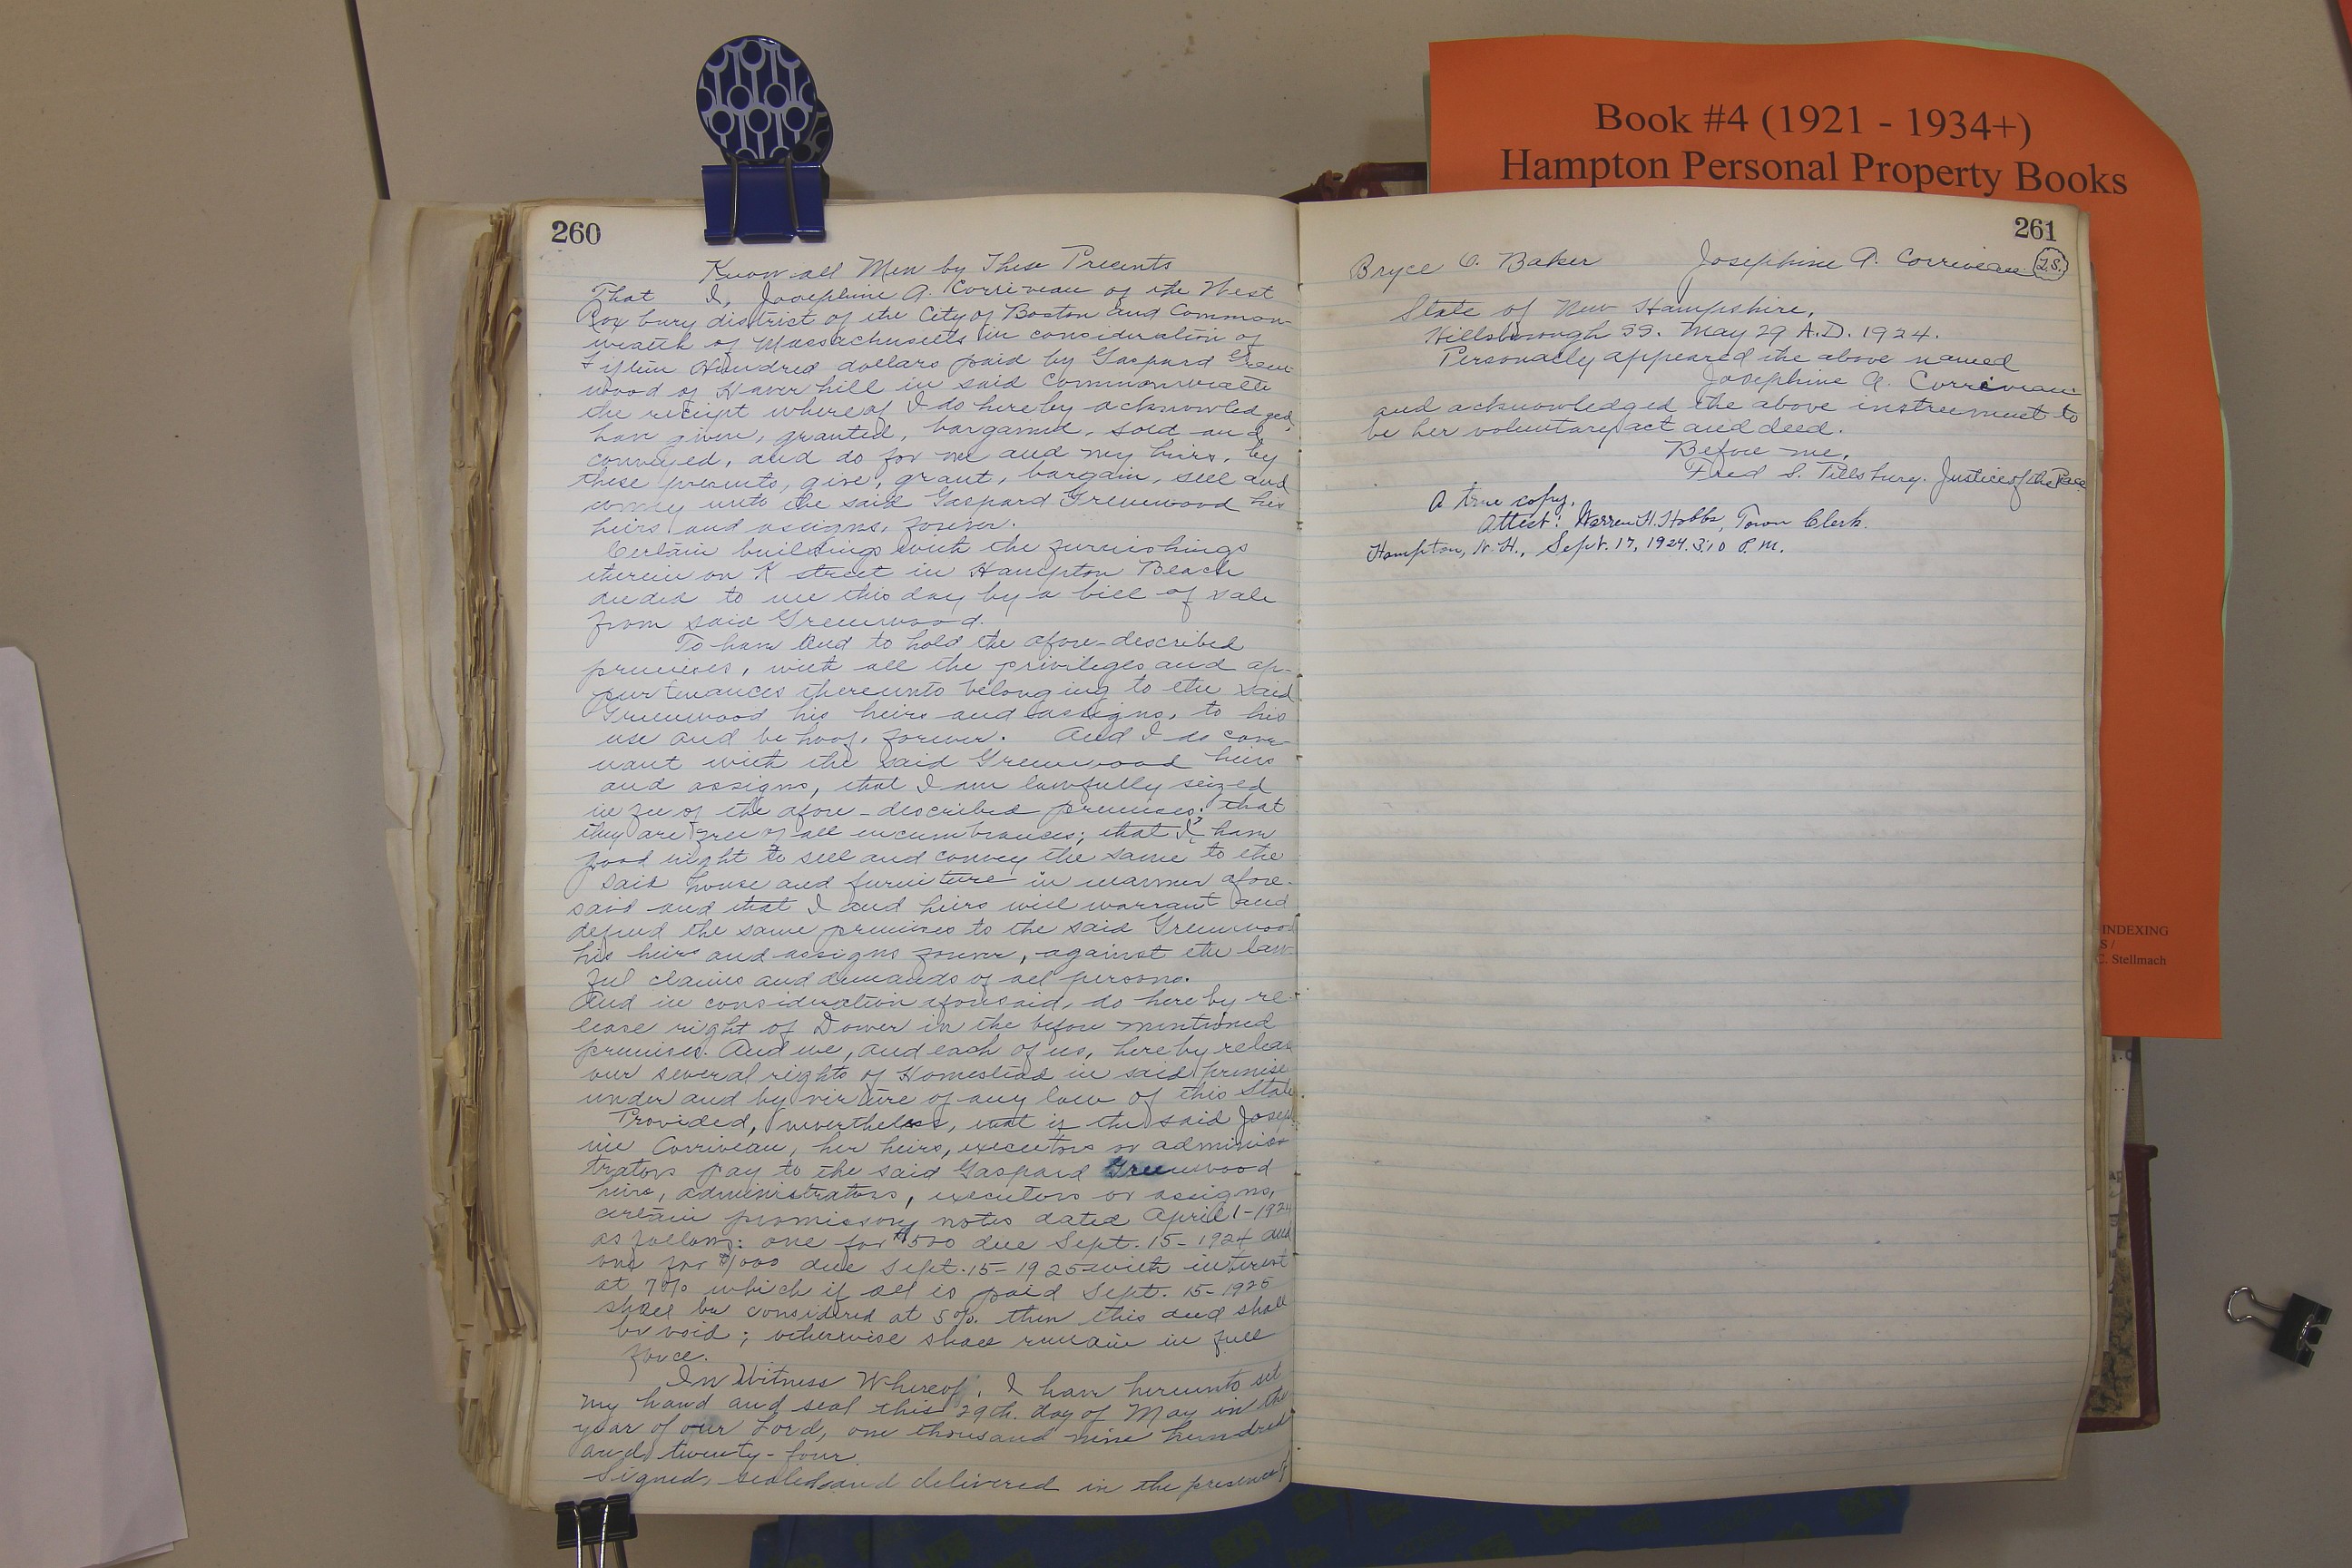 Book #4 (1921 - 1934+)
Hampton Personal Property Books
INDEXING
S /
C. Stellmach
260
Know all Men by These Presents
That I, Josephine A. Corriveau of the West
Roxbury district of the City of Boston and Common-
wealth of Massachusetts in consideration of
Fifteen Hundred dollars paid by Gaspard Green-
wood of Haverhill in said Commonwealth
the receipt whereof I do hereby acknowledged,
have given, granted, bargained, sold and
conveyed, and do for me and my heirs, by
these presents, give, grant, bargain, sell and
convey unto the said Gaspard Greenwood his
heirs and assigns, forever.
Certain buildings with the furnishings
therein on K street in Hampton Beach
deeded to me this day by a bill of sale
from said Greenwood.
To have and to hold the afore-described
premises, with all the privileges and ap-
purtenances thereunto belonging to the said
Greenwood his heirs and assigns, to his
use and behoof, forever. And I do cove-
nant with the said Greenwood heirs
and assigns, that I am lawfully seized
in fee of the afore-described premises; that
they are free of all incumbrances; that I have
good right to sell and convey the same to the
said house and furniture in manner afore-
said and that I and heirs will warrant and
defend the same premises to the said Greenwood
his heirs and assigns forever, against the law-
ful claims and demands of all persons.
And in consideration aforesaid, do hereby re-
lease right of Dower in the before mentioned
premises. And we, and each of us, hereby release
our several rights of Homestead in said premise
under and by virtue of any law of this State.
Provided, nevertheless, that if the said Joseph-
ine Corriveau, her heirs, executors or adminis-
trators pay to the said Gaspard Greenwood
heirs, administrators, executors or assigns,
certain promissory notes dated April 1-1924
as follows: one for $500 due Sept. 15-1924 and
one for $1000 due Sept. 15-1925 with interest
at 7% which if all is paid Sept. 15-1925
shall be considered at 5% then this deed shall
be void; otherwise shall remain in full
force.
In Witness Whereof, I have hereunto set
my hand and seal this 29th. day of May in the
year of our Lord, one thousand nine hundred
and twenty-four.
Signed, sealed and delivered in the presence of
261
Bryce O. Baker Josephine A. Corriveau L.S.
State of New Hampshire,
Hillsborough SS. May 29 A.D. 1924.
Personally appeared the above named
Josephine A. Corriveau
and acknowledged the above instrument to
be her voluntary act and deed.
Before me,
Fred S. Tillsbury. Justice of the Peace
A true copy.
Attest: Warren H. Hobbs, Town Clerk.
Hampton, N.H., Sept. 17, 1924. 3:10 P.M.